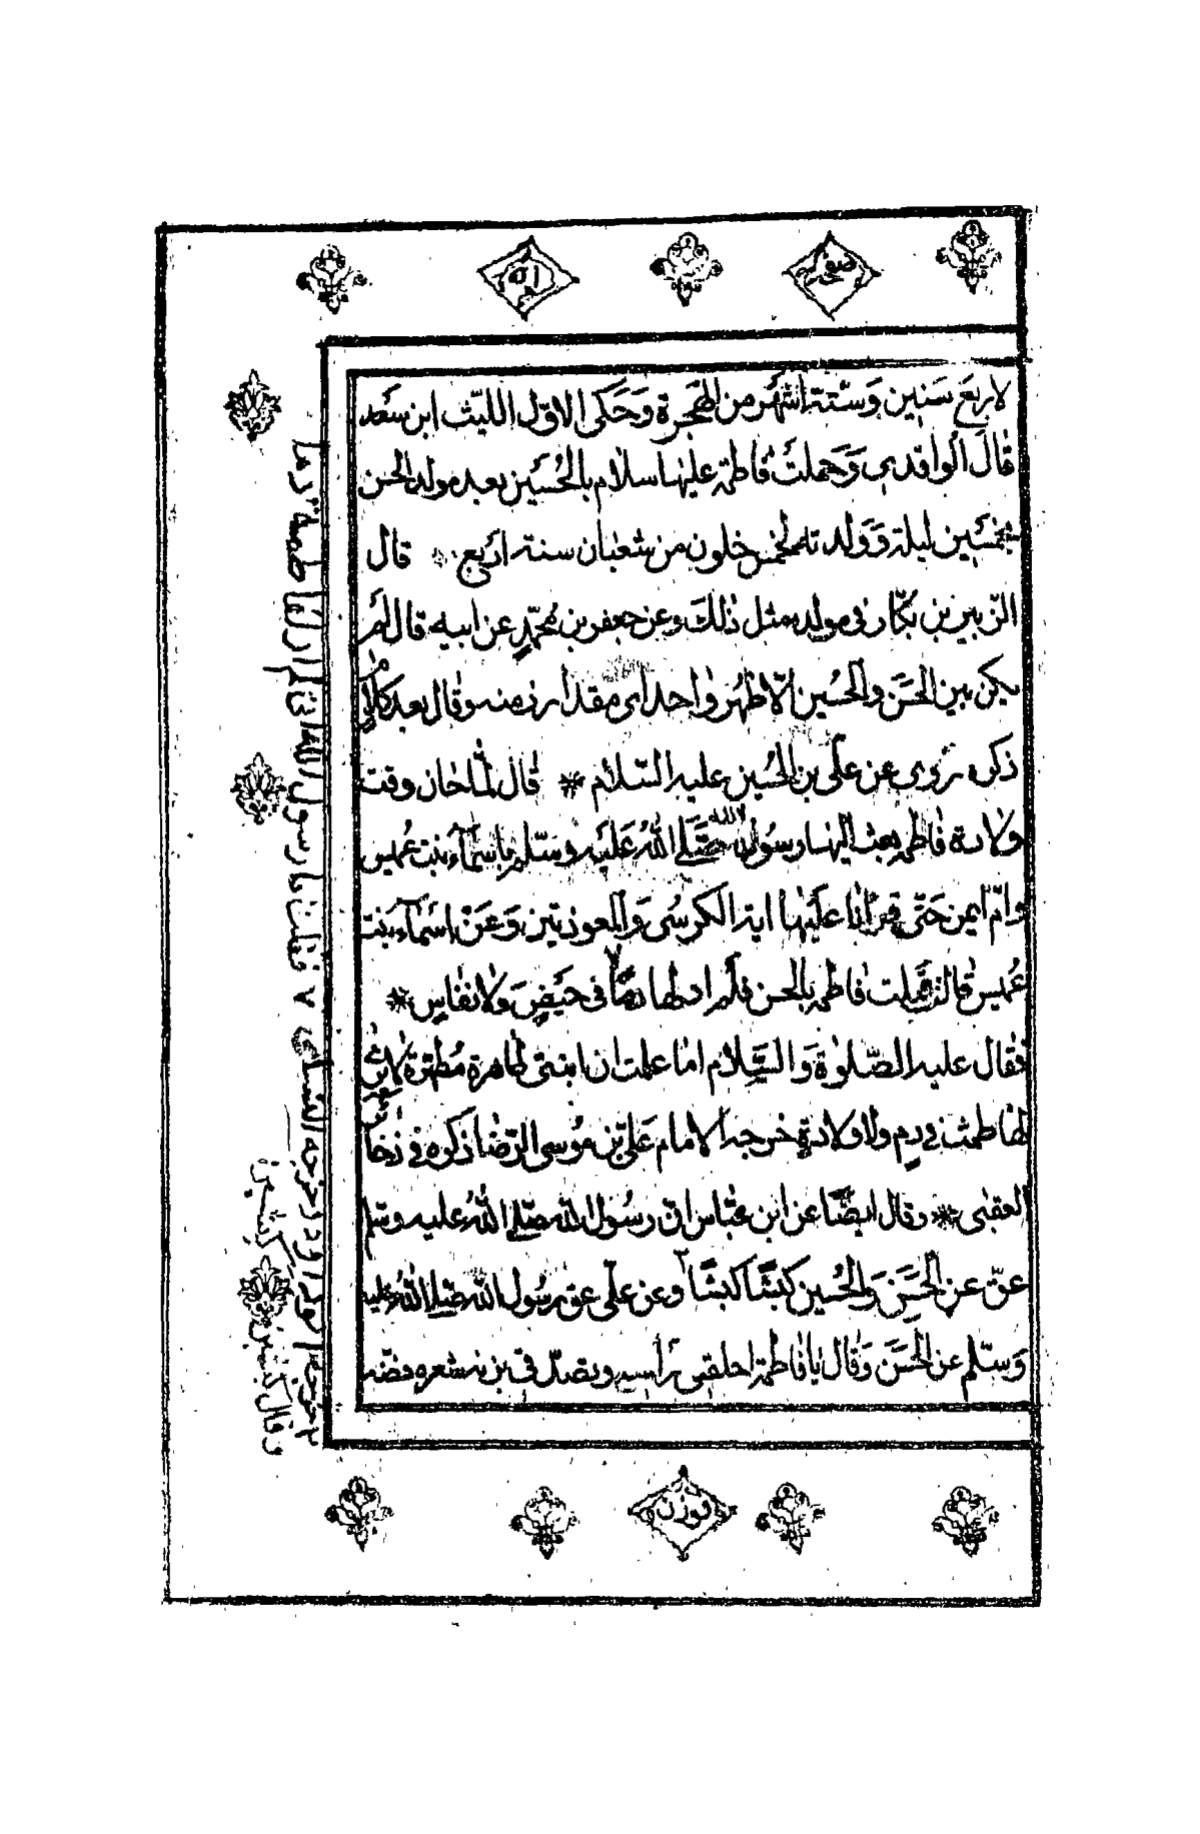 لاربع سنين وستة اشهر من الهجرة وحكى الاول الليث ابن سعد
قال الواقدى وحملت فاطمة عليها سلام بالحسين بعد مولد الحسن
بخمسين ليلة وولدته لخمس خلون من شعبان سنة اربع قال
الزبير بن بكار فى مولده مثل ذلك وعن جعفر بن محمد عن ابيه قال لم
يكن بين الحسن والحسين الا طهر واحد اى مقدار زمنه وقال بعد كلام
ذكره روى عن على بن الحسين عليه السلام * قال لما حان وقت
ولادة فاطمة بعث اليها رسول الله صلى الله عليه وسلم باسماء بنت عميس
وام ايمن حتى قرأنا عليها اية الكرسى والمعوذتين وعن اسماء بنت
عميس قالت قبلت فاطمة بالحسن فلم ار لها دما فى حيض ولا نفاس *
فقال عليه الصلوة والسلام اما علمت ان ابنتى طاهرة مطهرة لا يرى
لها طمث فى دم ولا ولادة خرجه الامام على بن موسى الرضا ذكره فى ذخائر
العقبى * وقال ايضا عن ابن عباس ان رسول الله صلى الله عليه وسلم
عق عن الحسن والحسين كبشا كبشا ٢ وعن على عق رسول الله صلى الله عليه
وسلم عن الحسن وقال يا فاطمة احلقى رأسه وتصدقى بزنة شعره فضة
٧ فقلت يا رسول الله انى لم ار لفاطمة دما
٢ خرجه ابو داود وخرجه النسائى
وقال كبشين كبشين